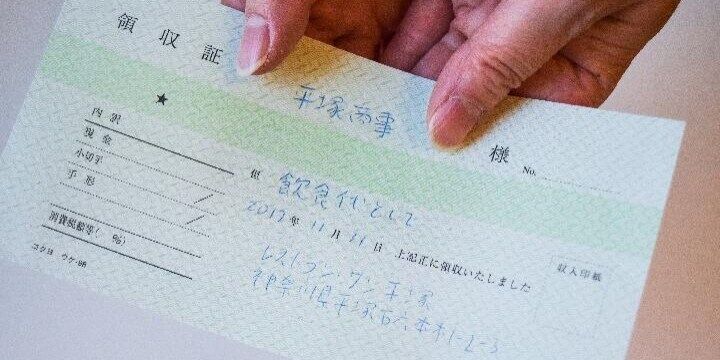 領収証
平塚商事 様
No.
★
内訳
現金
小切手
手形
消費税額等( %)
コクヨ ウケ-98
但 飲食代として
2017年 11月 11日 上記正に領収いたしました
収入印紙
レストラン・サン平塚
神奈川県平塚市六本木1-2-3